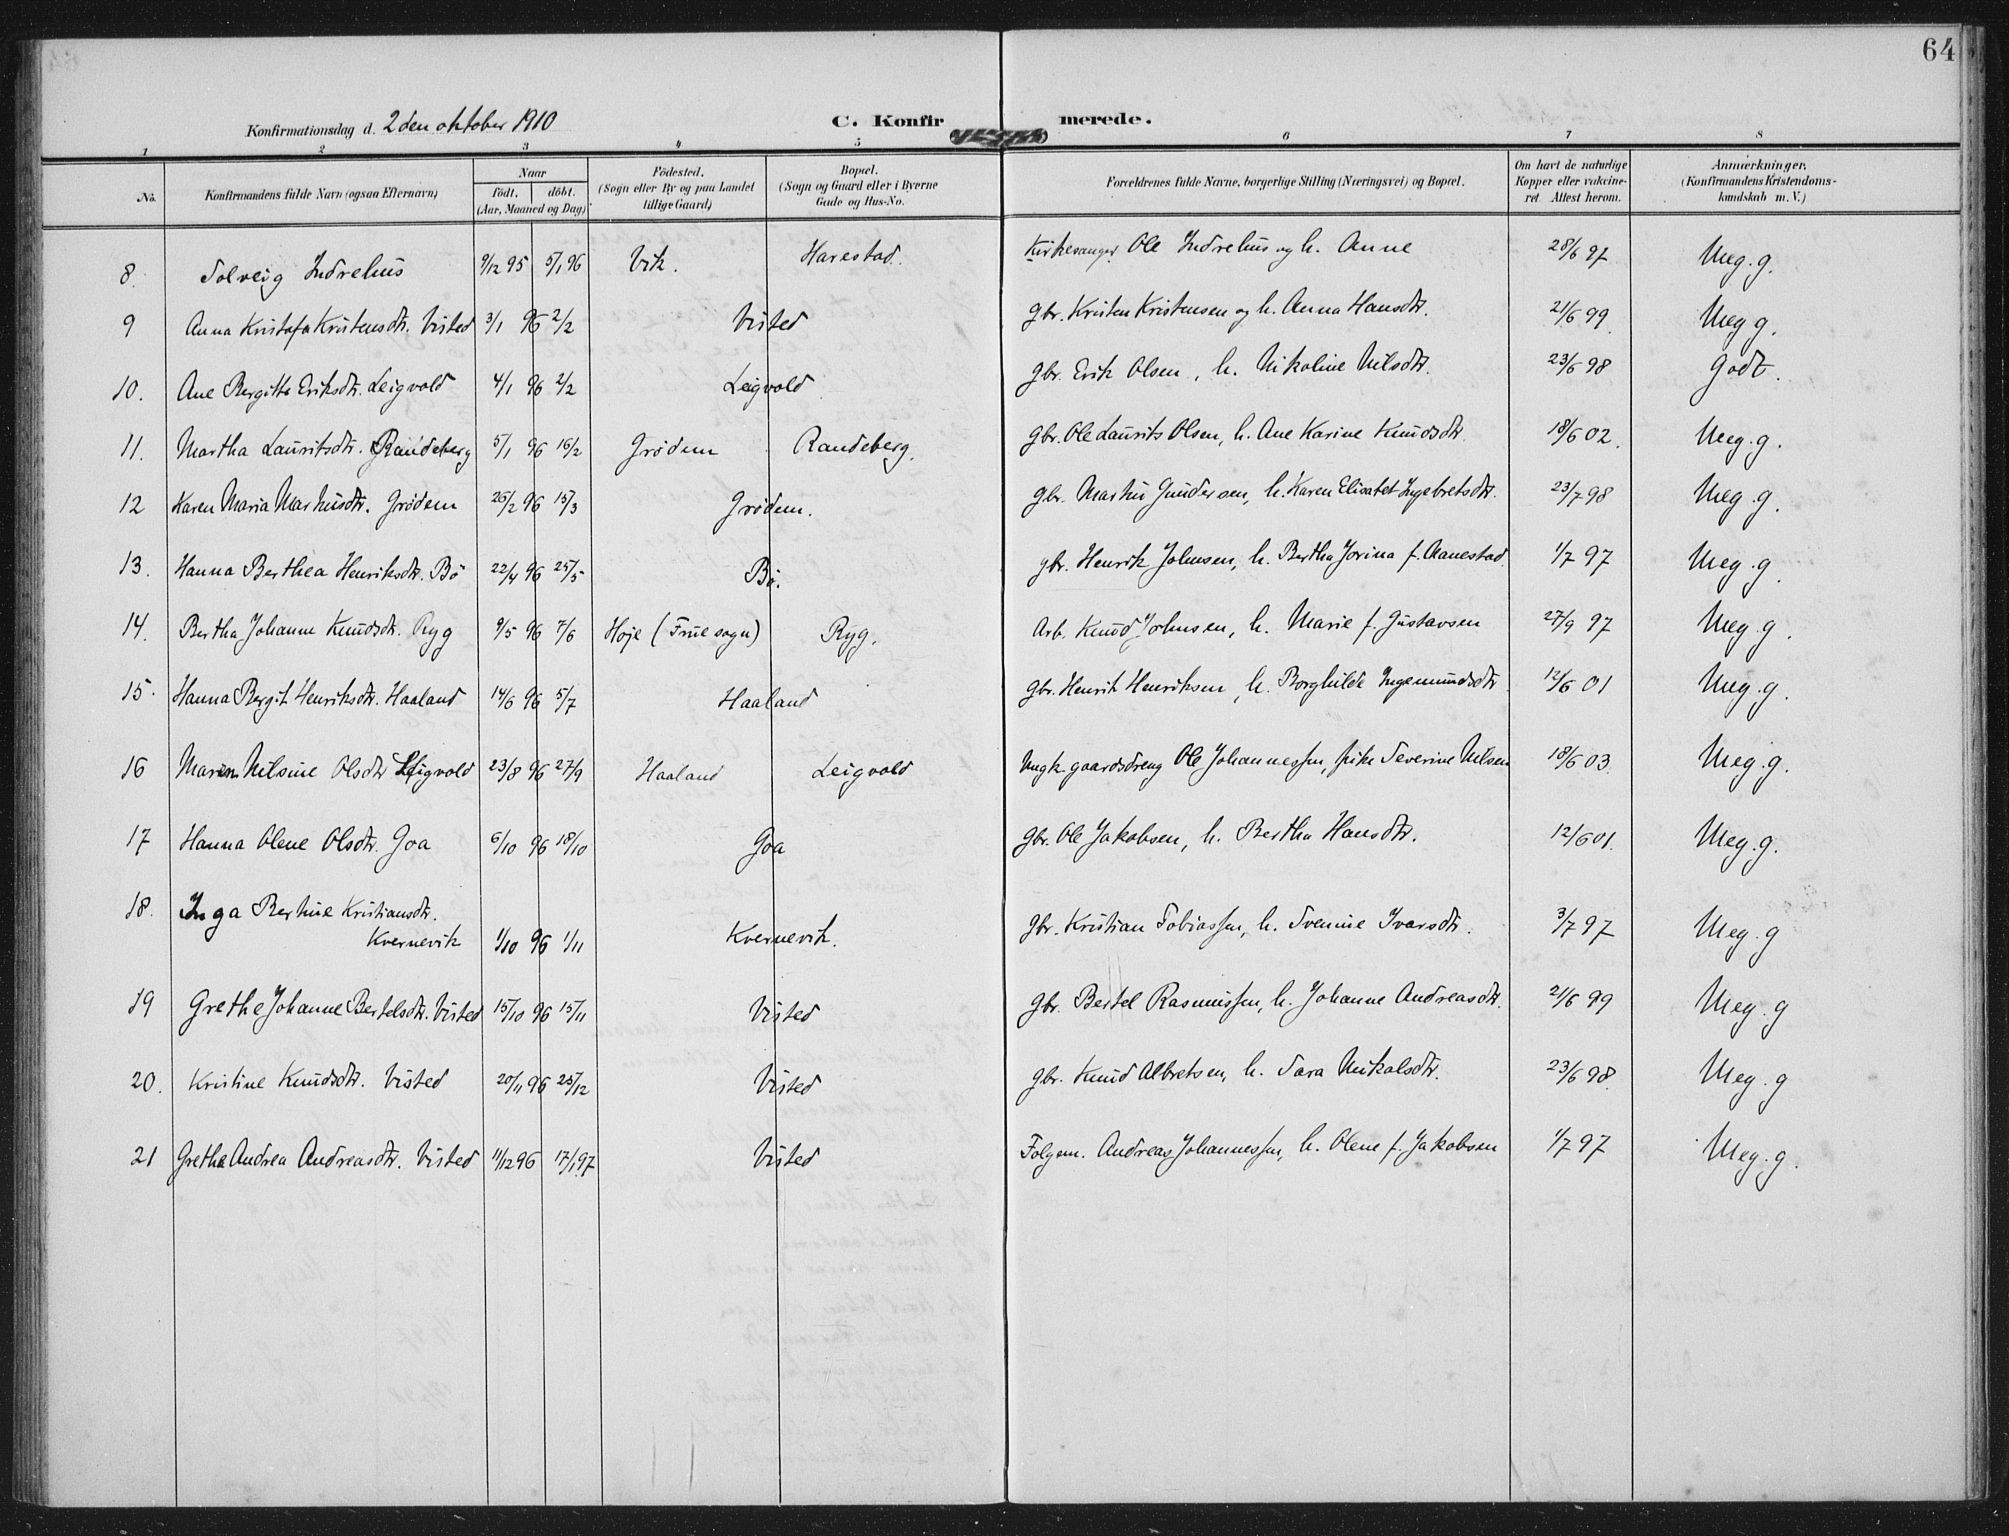 64
Konfirmationsdag d. 2den oktober 1910
C. Konfirmerede.
1 2 3 4 5 6 7 8
No. Konfirmandens fulde Navn (ogsaa Efternavn) Naar födt. döbt. (Aar, Maaned og Dag) Födested. (Sogn eller By og paa Landet tillige Gaard) Bopæl. (Sogn og Gaard eller i Byerne Gade og Hus-No. Forældrenes fulde Navne, borgerlige Stilling (Næringsvei) og Bopæl. Om havt de naturlige Kopper eller vakcineret. Attest herom. Anmærkninger. (Konfirmandens Kristendomskundskab m. V.)
8. Solveig Indrehus 9/12 95 5/1 96 Vik. Harestad. Kirkesanger Ole Indrehus og h. Anne 28/6 97 Meg. g.
9 Anna Kristofa Kristensdtr. Visted 3/1 96 2/2 Visted gbr. Kristen Kristensen og h. Anna Hansdtr. 21/6 99 Meg g.
10. Ane Bergitte Eriksdtr. Leigvold 4/1 96 2/2 Leigvold gbr. Erik Olsen, h. Nikoline Nilsdtr. 23/6 98 Godt.
11. Martha Lauritsdtr. Randeberg 5/1 96 16/2 Grödem Randeberg. gbr. Ole Laurits Olsen, h. Ane Karine Knudsdtr. 18/6 02 Meg. g.
12 Karen Maria Markusdtr. Grödem 26/2 96 15/3 Grödem. gbr. Markus Gundersen, h. Karen Elisabet Ingebretsdtr. 23/7 98 Meg. g.
13. Hanna Berthea Henriksdtr. Bö 22/4 96 25/5 Bö. gbr. Henrik Johnsen, h. Bertha Jorina f. Aanestad. 1/7 97 Meg. g.
14. Bertha Johanne Knudsdtr. Ryg 9/5 96 7/6 Höje (Frue sogn) Ryg. Arb. Knud Johnsen, h. Marie f. Gustavsen 27/9 97 Meg. g.
15. Hanna Bergit Henriksdtr. Haaland 14/6 96 5/7 Haaland gbr. Henrik Henriksen, h. Borghilde Ingemundsdtr. 12/6 01 Meg. g.
16 Maren Nilsine Olsdtr Leigvold 23/8 96 27/9 Haaland Leigvold Ungk. gaardsdreng Ole Johannessen, pike Severine Nilsen 18/6 03. Meg. g.
17 Hanna Olene Olsdtr. Goa 6/10 96 18/10 Goa gbr. Ole Jakobsen, h. Bertha Hansdtr. 12/6 01. Meg. g.
18. Inga Bertine Kristiansdtr.
Kvernevik 1/10 96 1/11 Kvernevik. gbr. Kristian Tobiassen, h. Svenine Ivarsdtr. 3/7 97 Meg. g
19 Grethe Johanne Bertelsdtr. Visted 15/10 96 15/11 Visted gbr. Bertel Rasmussen, h. Johanne Andreasdtr. 21/6 99 Meg. g
20. Kristine Knudsdtr. Visted 20/11 96 25/12 Visted gbr. Knud Albretsen, h. Sara Nikolsdtr. 23/6 98. Meg. g
21 Grethe Andrea Andreasdtr. Visted 11/12 96 17/1 97 Visted Folgem. Andreas Johannessen, h. Olene f. Jakobsen 1/7 97 Meg. g.